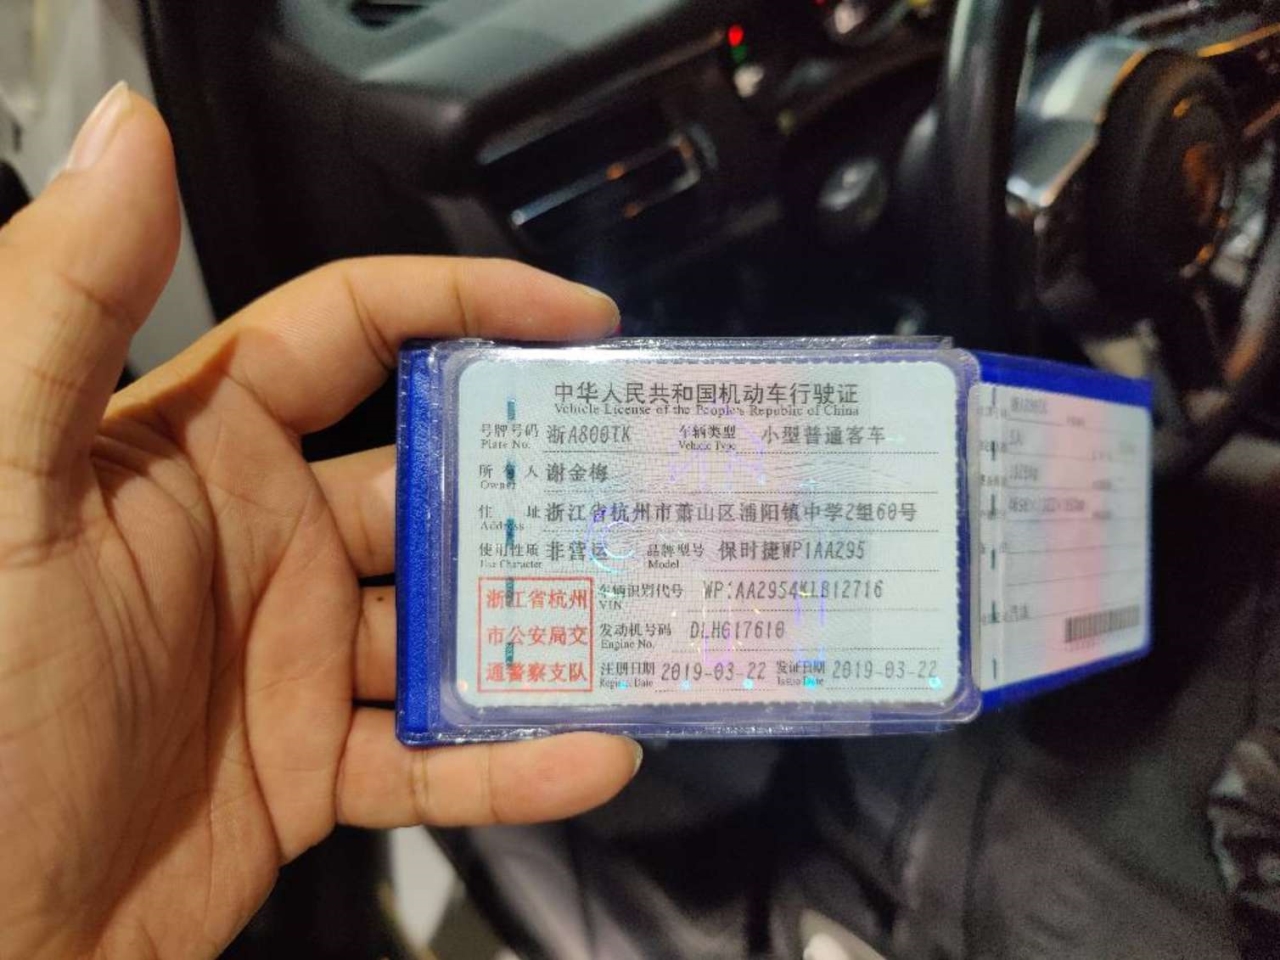 中华人民共和国机动车行驶证
Vehicle License of the People's Republic of China
号牌号码 浙A800TK 车辆类型 小型普通客车
Plate No. Vehicle Type
所有人 谢金梅
Owner
住址 浙江省杭州市萧山区浦阳镇中学2组60号
Address
使用性质 非营运 品牌型号 保时捷WP1AA295
Use Character Model
浙江省杭州
市公安局交
通警察支队
车辆识别代号 WP1AA2954KLB12716
VIN
发动机号码 DLHG17610
Engine No.
注册日期 2019-03-22 发证日期 2019-03-22
Register Date Issue Date